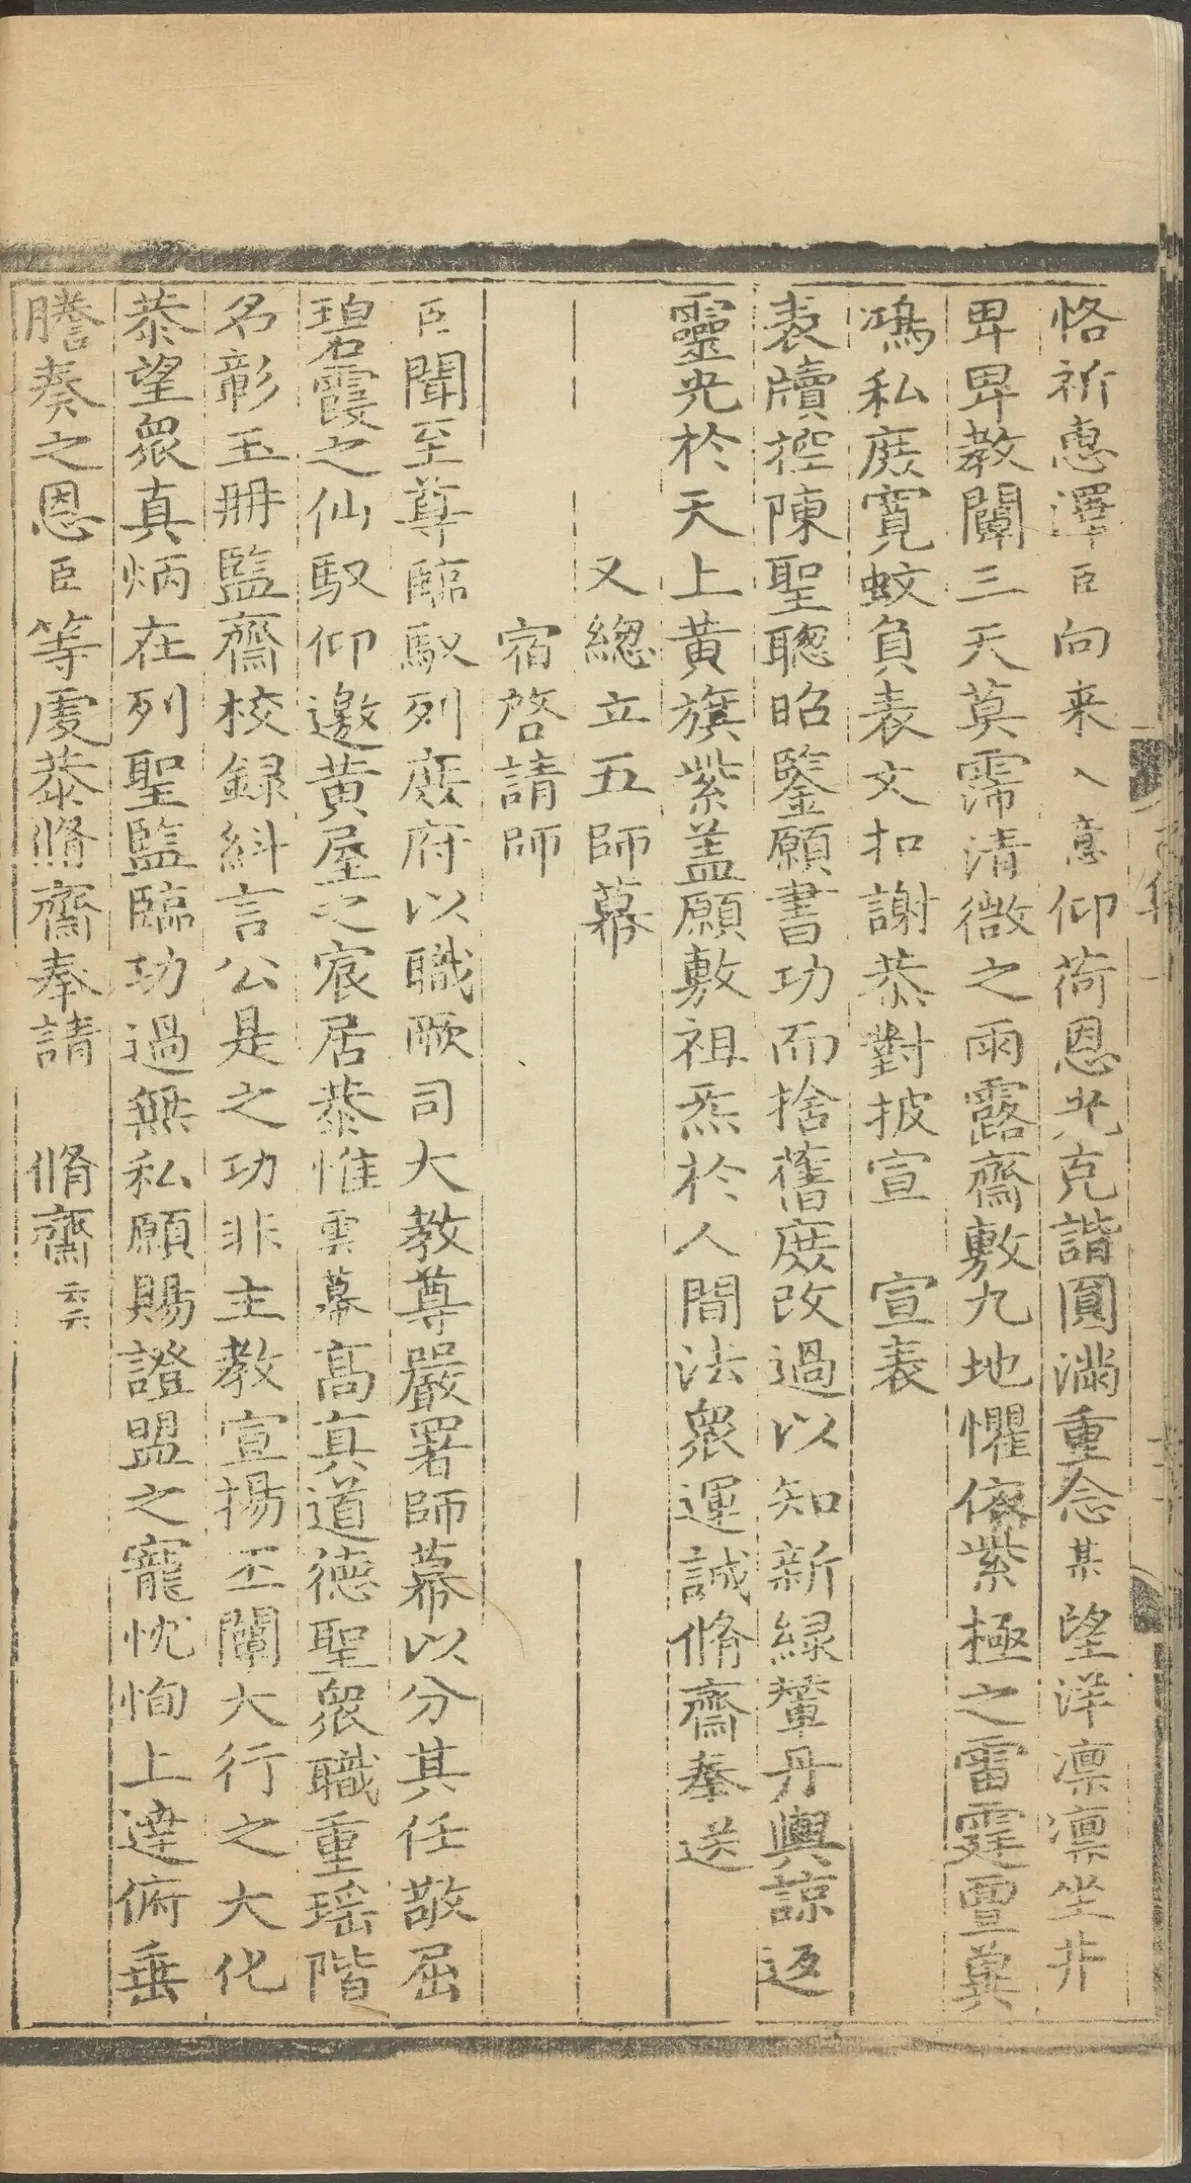 恪祈惠澤臣向来入意仰荷恩光克諧圓滿重念某望洋凛凛坐井
卑卑教闡三天莫霈清微之雨露齋敷九地懼依紫極之雷霆亶冀
鴻私庻寛蚊負表文扣謝恭對披宣　宣表
表牘控陳聖聦昭鑒願書功而捨舊庻改過以知新緑輦丹輿諒返
靈光於天上黄旗紫盖願敷祖炁於人間法衆運誠脩齋奉送
又總立五師幕
宿啓請師
臣聞至尊臨馭列庻府以職厥司大教尊嚴署師幕以分其任敬屈
碧霞之仙馭仰邀黄屋之宸居恭惟雲幕高真道德聖衆職重瑶階
名彰玉冊監齋校録紏言公是之功非主教宣揚丕闡大行之大化
恭望衆真炳在列聖監臨功過無私願賜證盟之寵忱恂上達俯垂
謄奏之恩臣等虔恭脩齋奉請　脩齋云云